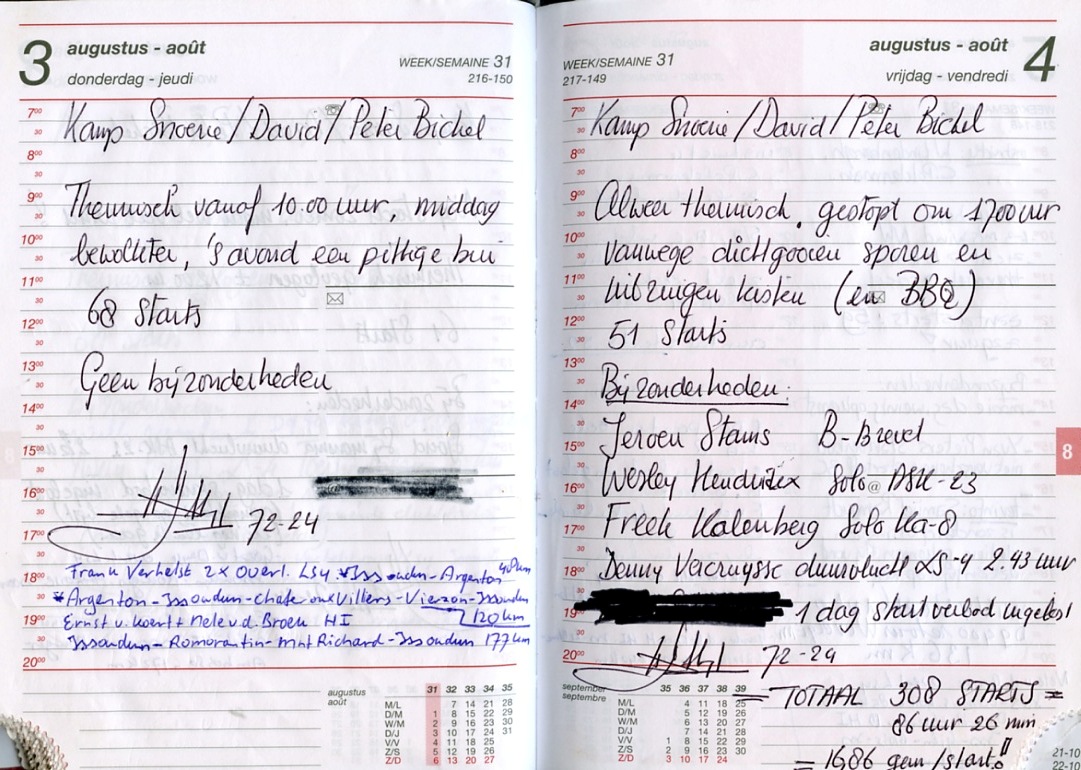 3 augustus - août
donderdag - jeudi
WEEK/SEMAINE 31
216-150
Kamp Snoerie/David/Peter Bickel
Thermisch vanaf 10.00 uur, middag
bewolkter, 's avond een pittige bui
68 Starts
Geen bijzonderheden
72-24
Frank Verhelst 2x Overl. LS4 Issoudun-Argenton 40 km
* Argenton-Issoudun-chateauxVillers-Vierzon-Issoudun
120 km
Ernst v. Koert + Nele v.d. Broek HI
Issoudun-Romorantin-Mnt Richard-Issoudun 177 km
7⁰⁰
30
8⁰⁰
30
9⁰⁰
30
10⁰⁰
30
11⁰⁰
30
12⁰⁰
30
13⁰⁰
30
14⁰⁰
30
15⁰⁰
30
16⁰⁰
30
17⁰⁰
30
18⁰⁰
30
19⁰⁰
30
20⁰⁰
augustus
août
31 32 33 34 35
M/L 7 14 21 28
D/M 1 8 15 22 29
W/M 2 9 16 23 30
D/J 3 10 17 24 31
V/V 4 11 18 25
Z/S 5 12 19 26
Z/D 6 13 20 27
WEEK/SEMAINE 31
217-149
augustus - août 4
vrijdag - vendredi
Kamp Snoerie/David/Peter Bickel
Alweer thermisch, gestopt om 1700 uur
vanwege dichtgooien sporen en
uitzuigen kisten (en BBQ)
51 Starts
Bijzonderheden:
Jeroen Stams B-Brevet
Wesley Hendrixx Solo ASK-23
Freek Kalenberg Solo Ka-8
Denny Vercruysse duurvlucht LS-4 2.43 uur
1 dag startverbod ingelost
72-24
= TOTAAL 308 STARTS =
86 uur 26 min
= 1686 gem/start!!
7⁰⁰
30
8⁰⁰
30
9⁰⁰
30
10⁰⁰
30
11⁰⁰
30
12⁰⁰
30
13⁰⁰
30
14⁰⁰
30
15⁰⁰
30
16⁰⁰
30
17⁰⁰
30
18⁰⁰
30
19⁰⁰
30
20⁰⁰
8
september
septembre
35 36 37 38 39
M/L 4 11 18 25
D/M 5 12 19 26
W/M 6 13 20 27
D/J 7 14 21 28
V/V 1 8 15 22 29
Z/S 2 9 16 23 30
Z/D 3 10 17 24
21-10
22-10